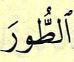 ٱلطُّورَ